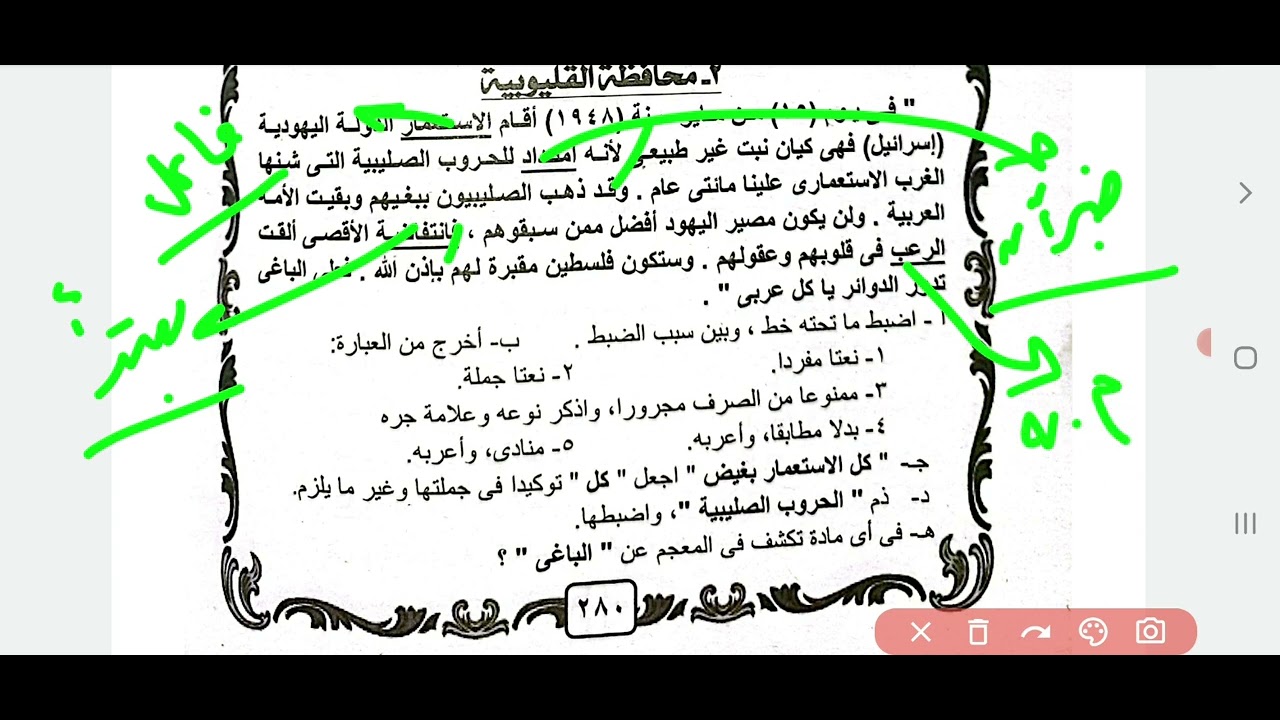 ٢ـ محافظة القليوبية
" فى يوم (١٥) من مايو سنة (١٩٤٨) أقام الإستعمار الدولة اليهودية
(إسرائيل) فهى كيان نبت غير طبيعى لأنه امتداد للحروب الصليبية التى شنها
الغرب الاستعمارى علينا مائتى عام . وقد ذهب الصليبيون ببغيهم وبقيت الأمة
العربية . ولن يكون مصير اليهود أفضل ممن سبقوهم ، فانتفاضة الأقصى ألقت
الرعب فى قلوبهم وعقولهم . وستكون فلسطين مقبرة لهم بإذن الله . فعلى الباغى
تدور الدوائر يا كل عربى " .
أ - اضبط ما تحته خط ، وبين سبب الضبط . ب- أخرج من العبارة:
١- نعتا مفردا. ٢- نعتا جملة.
٣- ممنوعا من الصرف مجرورا، واذكر نوعه وعلامة جره
٤- بدلا مطابقا، وأعربه. ٥- منادى، وأعربه.
جـ- " كل الاستعمار بغيض " اجعل " كل " توكيدا فى جملتها وغير ما يلزم.
د- ذم " الحروب الصليبية "، واضبطها.
هـ- فى أى مادة تكشف فى المعجم عن " الباغى " ؟
٢٨٠
فاعل
مبتدأ
؟